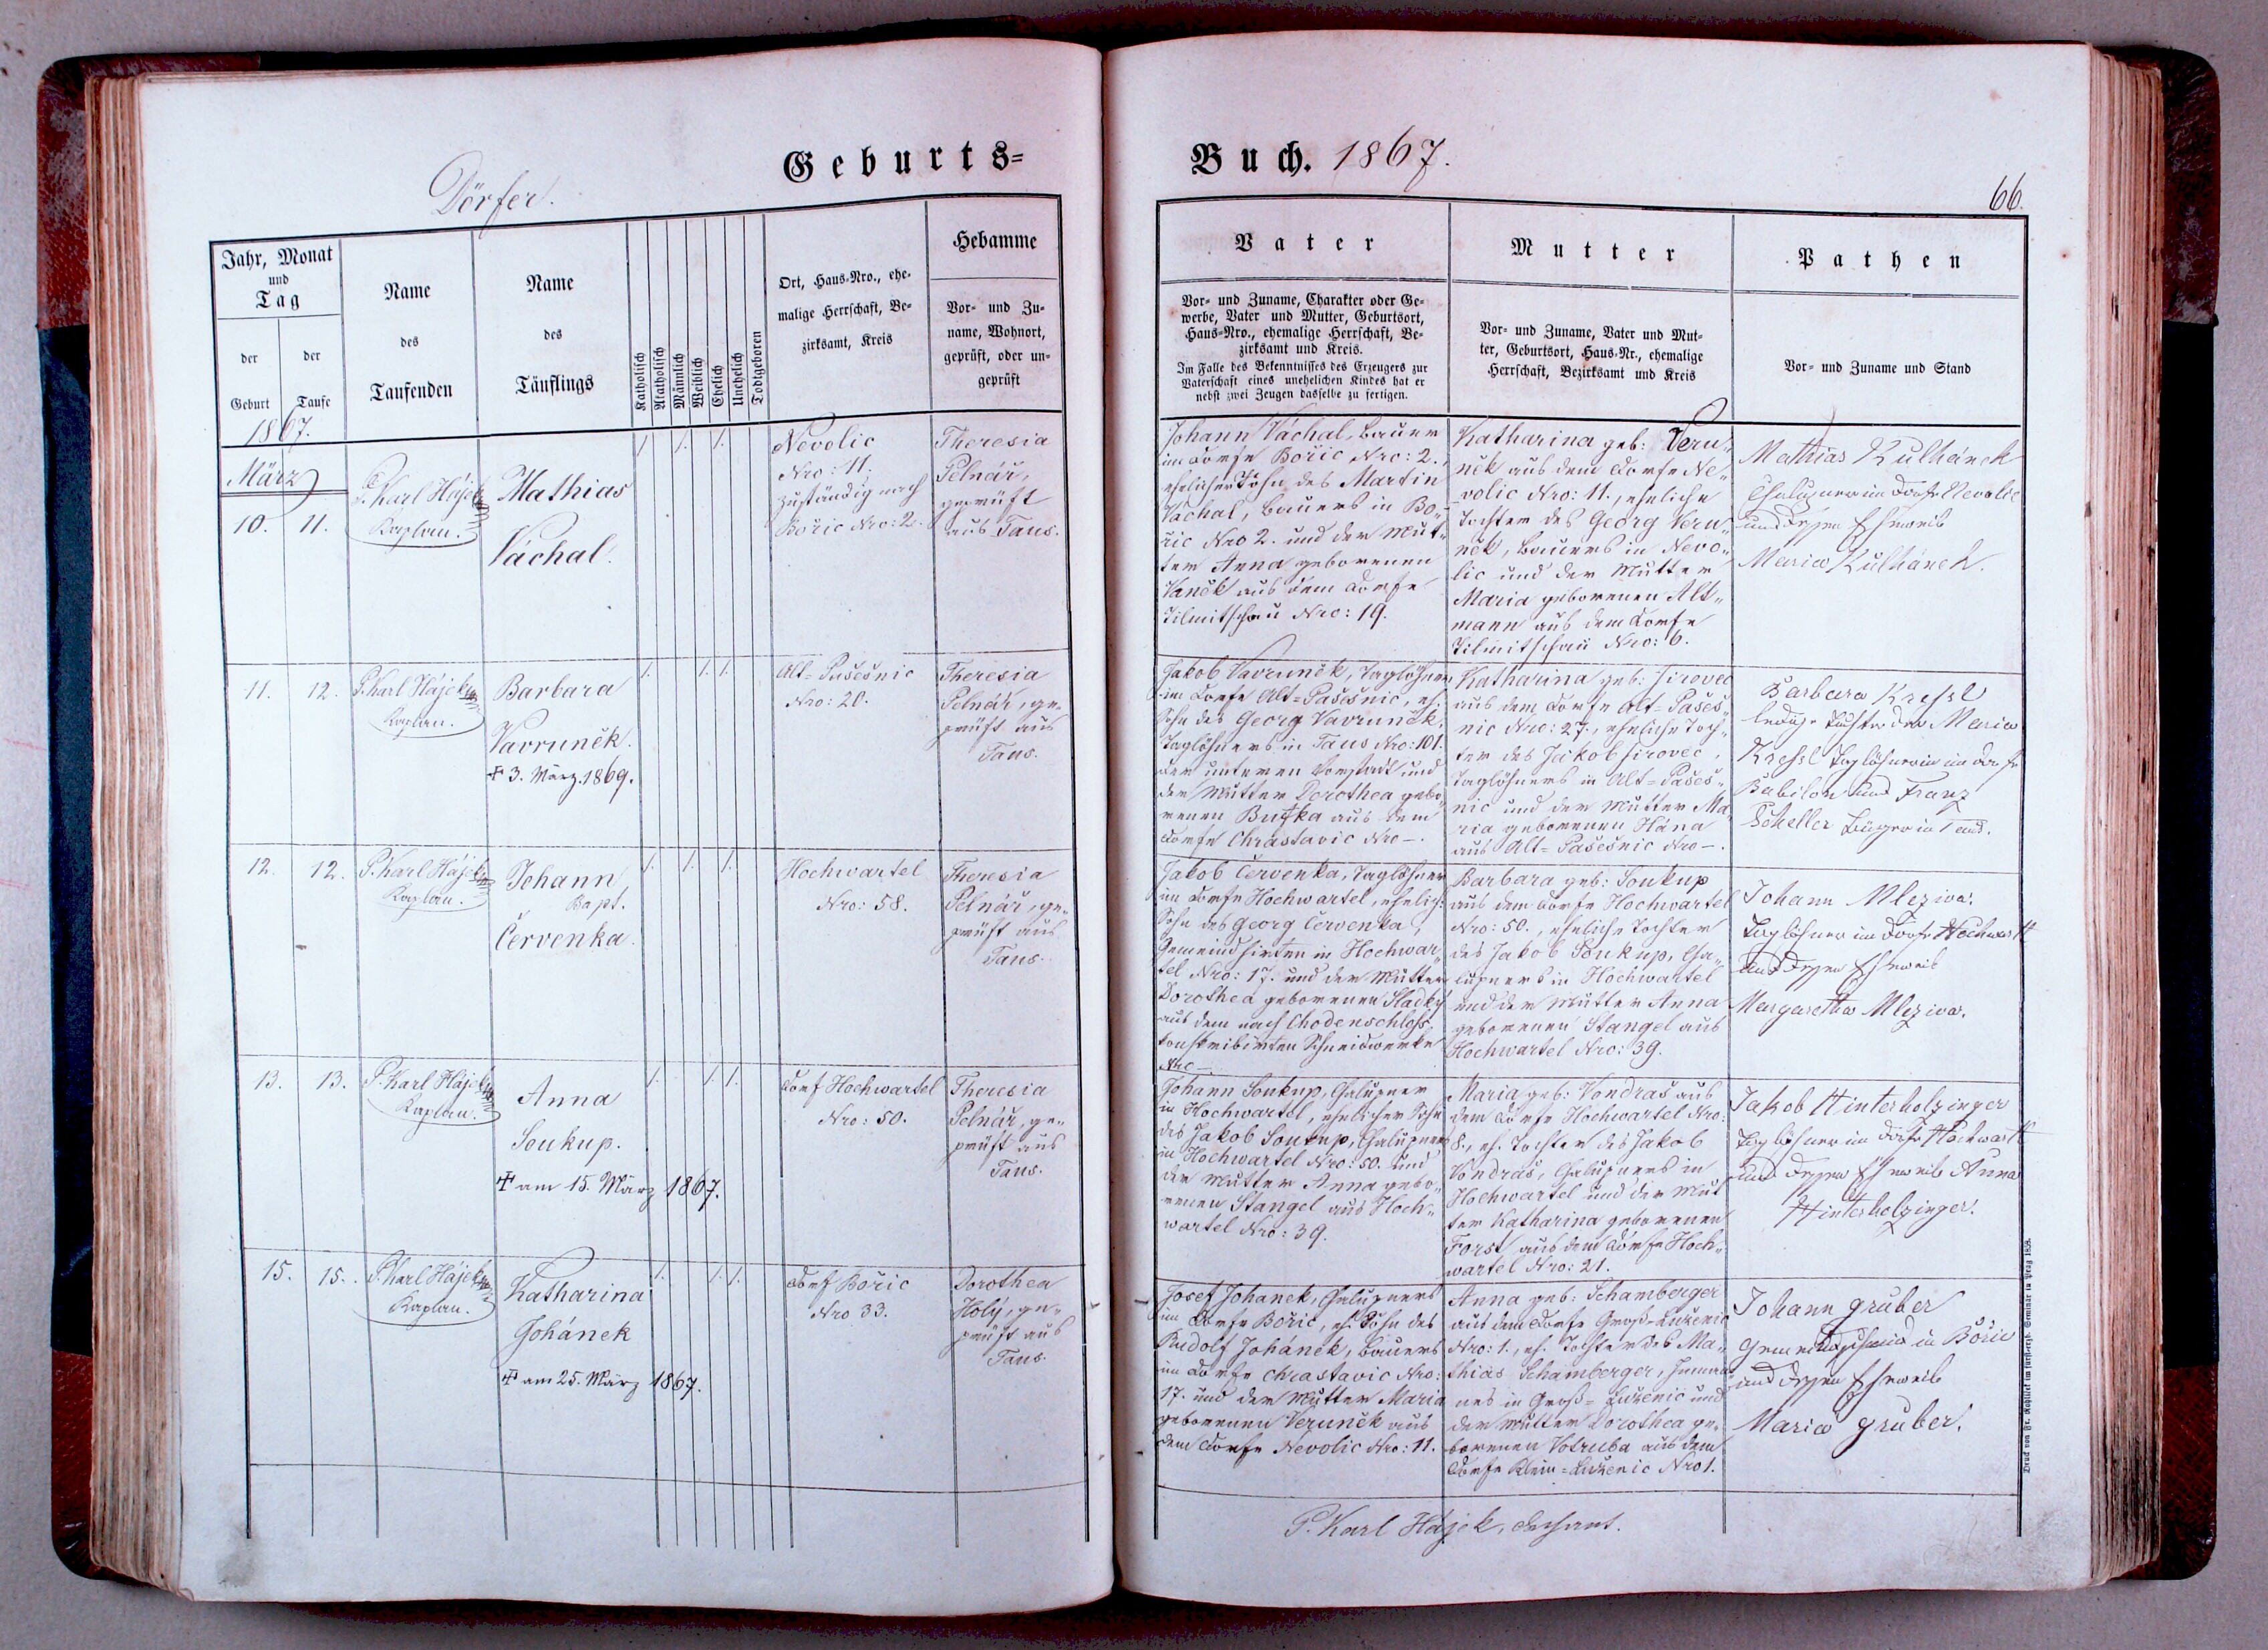 Dörfer.
Geburts=
Jahr, Monat
und
Tag
der
Geburt
der
Taufe
Name
des
Taufenden
Name
des
Täuflings
Katholisch
Akatholisch
Männlich
Weiblich
Ehelich
Unehelich
Todtgeboren
Ort, Haus-Nro., ehe-
malige Herrschaft, Be-
zirksamt, Kreis
Hebamme
Vor- und Zu-
name, Wohnort,
geprüft, oder un-
geprüft
1867.
März
10. 11.
P. Karl Hájek
Kaplan.
Mathias
Váchal.
1. 1. 1.
Nevolic
Nro: 11.
zuständig nach
Bořic Nro: 2.
Theresia
Pelnář,
geprüft
aus Taus.
11. 12.
P. Karl Hájek
Kaplan.
Barbara
Vavruněk.
+ 3. März. 1869.
1. 1. 1.
Alt=Pašešnic
Nro: 20.
Theresia
Pelnář, ge„
prüft aus
Taus.
12. 12.
P. Karl Hájek
Kaplan.
Johann
Bapt.
Červenka.
1. 1. 1.
Hochwartel
Nro: 58.
Theresia
Pelnář, ge„
prüft aus
Taus.
13. 13.
P. Karl Hájek
Kaplan.
Anna
Soukup.
+ am 15. März 1867.
1. 1. 1.
Dorf Hochwartel
Nro: 50.
Theresia
Pelnář, ge„
prüft aus
Taus.
15. 15.
P. Karl Hájek
Kaplan.
Katharina
Johánek
+ am 25. März 1867.
1. 1. 1.
Dorf Bořic
Nro 33.
Dorothea
Holý, ge„
prüft aus
Taus.
Buch. 1867.
66.
Vater
Vor- und Zuname, Charakter oder Ge-
werbe, Vater und Mutter, Geburtsort,
Haus-Nro., ehemalige Herrschaft, Be-
zirksamt und Kreis.
Im Falle des Bekenntnisses des Erzeugers zur
Vaterschaft eines unehelichen Kindes hat er
nebst zwei Zeugen dasselbe zu fertigen.
Mutter
Vor- und Zuname, Vater und Mut-
ter, Geburtsort, Haus-Nr., ehemalige
Herrschaft, Bezirksamt und Kreis
Pathen
Vor- und Zuname und Stand
Johann Váchal, Bauer
im Dorfe Bořic Nro: 2.,
ehelicher Sohn des Martin
Váchal, Bauers in Bo„
řic Nro 2. und der Mut„
ter Anna geborenen
Vaněk aus dem Dorfe
Tilmitschau Nro: 19.
Katharina geb: Veru„
něk aus dem Dorfe Ne„
volic Nro: 11., eheliche
Tochter des Georg Veru„
něk, Bauers in Nevo„
lic und der Mutter
Maria geborenen Alt„
mann aus dem Dorfe
Tilmitschau Nro: 6.
Mathias Kulhánek
Chalupner im Dorfe Nevolic
und dessen Eheweib
Maria Kulhánek.
Jakob Vavruněk, Taglöhner
im Dorfe Alt=Pašešnic, eh.
Sohn des Georg Vavruněk,
Taglöhners in Taus Nro: 101.
der unteren Vorstadt und
der Mutter Dorothea gebo„
renen Bufka aus dem
Dorfe Chrastavic Nro —.
Katharina geb: Jirovec
aus dem Dorfe Alt=Pašeš„
nic Nro: 27., eheliche Toch„
ter des Jakob Jirovec,
Taglöhners in Alt=Pašeš„
nic und der Mutter Ma„
ria geborenen Hána
aus Alt=Pašešnic Nro —.
Barbara Kressl
ledige Tochter der Maria
Kressl Taglöhnerin im Dorfe
Babilon und Franz
Scheller Bürger in Taus.
Jakob Červenka, Taglöhner
im Dorfe Hochwartel, ehelich:
Sohn des Georg Červenka,
Gemeindhirten in Hochwar„
tel Nro: 17. und der Mutter
Dorothea geborenen Sladký
aus dem nach Chodenschloss
konskribirten Schneidwerke
Nro —.
Barbara geb: Soukup
aus dem Dorfe Hochwartel
Nro: 50., eheliche Tochter
des Jakob Soukup, Cha„
lupners in Hochwartel
und der Mutter Anna
geborenen Stangel aus
Hochwartel Nro: 39.
Johann Mleziva,
Taglöhner im Dorfe Hochwartl
und dessen Eheweib
Margaretha Mleziva.
Johann Soukup, Chalupner
in Hochwartel, ehelicher Sohn
des Jakob Soukup, Chalupners
in Hochwartel Nro: 50. und
der Mutter Anna gebo„
renen Stangel aus Hoch„
wartel Nro: 39.
Maria geb: Vondraš aus
dem Dorfe Hochwartel Nro:
8., eh. Tochter des Jakob
Vondraš, Chalupners in
Hochwartel und der Mut
ter Katharina geborenen
Forst aus dem Dorfe Hoch„
wartel Nro: 21.
Jakob Hinterholzinger
Taglöhner im Dorfe Hochwartl
und dessen Eheweib Anna
Hinterholzinger.
Josef Johanek, Chalupners
im Dorfe Bořic, eh. Sohn des
Rudolf Johánek, Bauers
im Dorfe Chrastavic Nro:
17. und der Mutter Maria
geborenen Veruněk aus
dem Dorfe Nevolic Nro: 11.
Anna geb: Schamberger
aus dem Dorfe Groß-Luženic
Nro: 1., eh. Tochter des Ma„
thias Schamberger,
ners in Groß=Luženic und
der Mutter Dorothea ge„
borenen Votruba aus dem
Dorfe Klein=Luženic Nro 1.
Johann Gruber
Gemeindschmid in Bořic
und dessen Eheweib
Maria Gruber.
P. Karl Hájek, Dechant.
Druck von Fr. Rohliček im fürst-erzb. Seminär in Prag 1859.